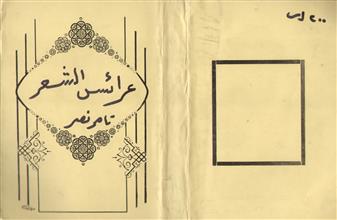 عرائس الشعر
تامر نصر
٢٠٠ ل.س